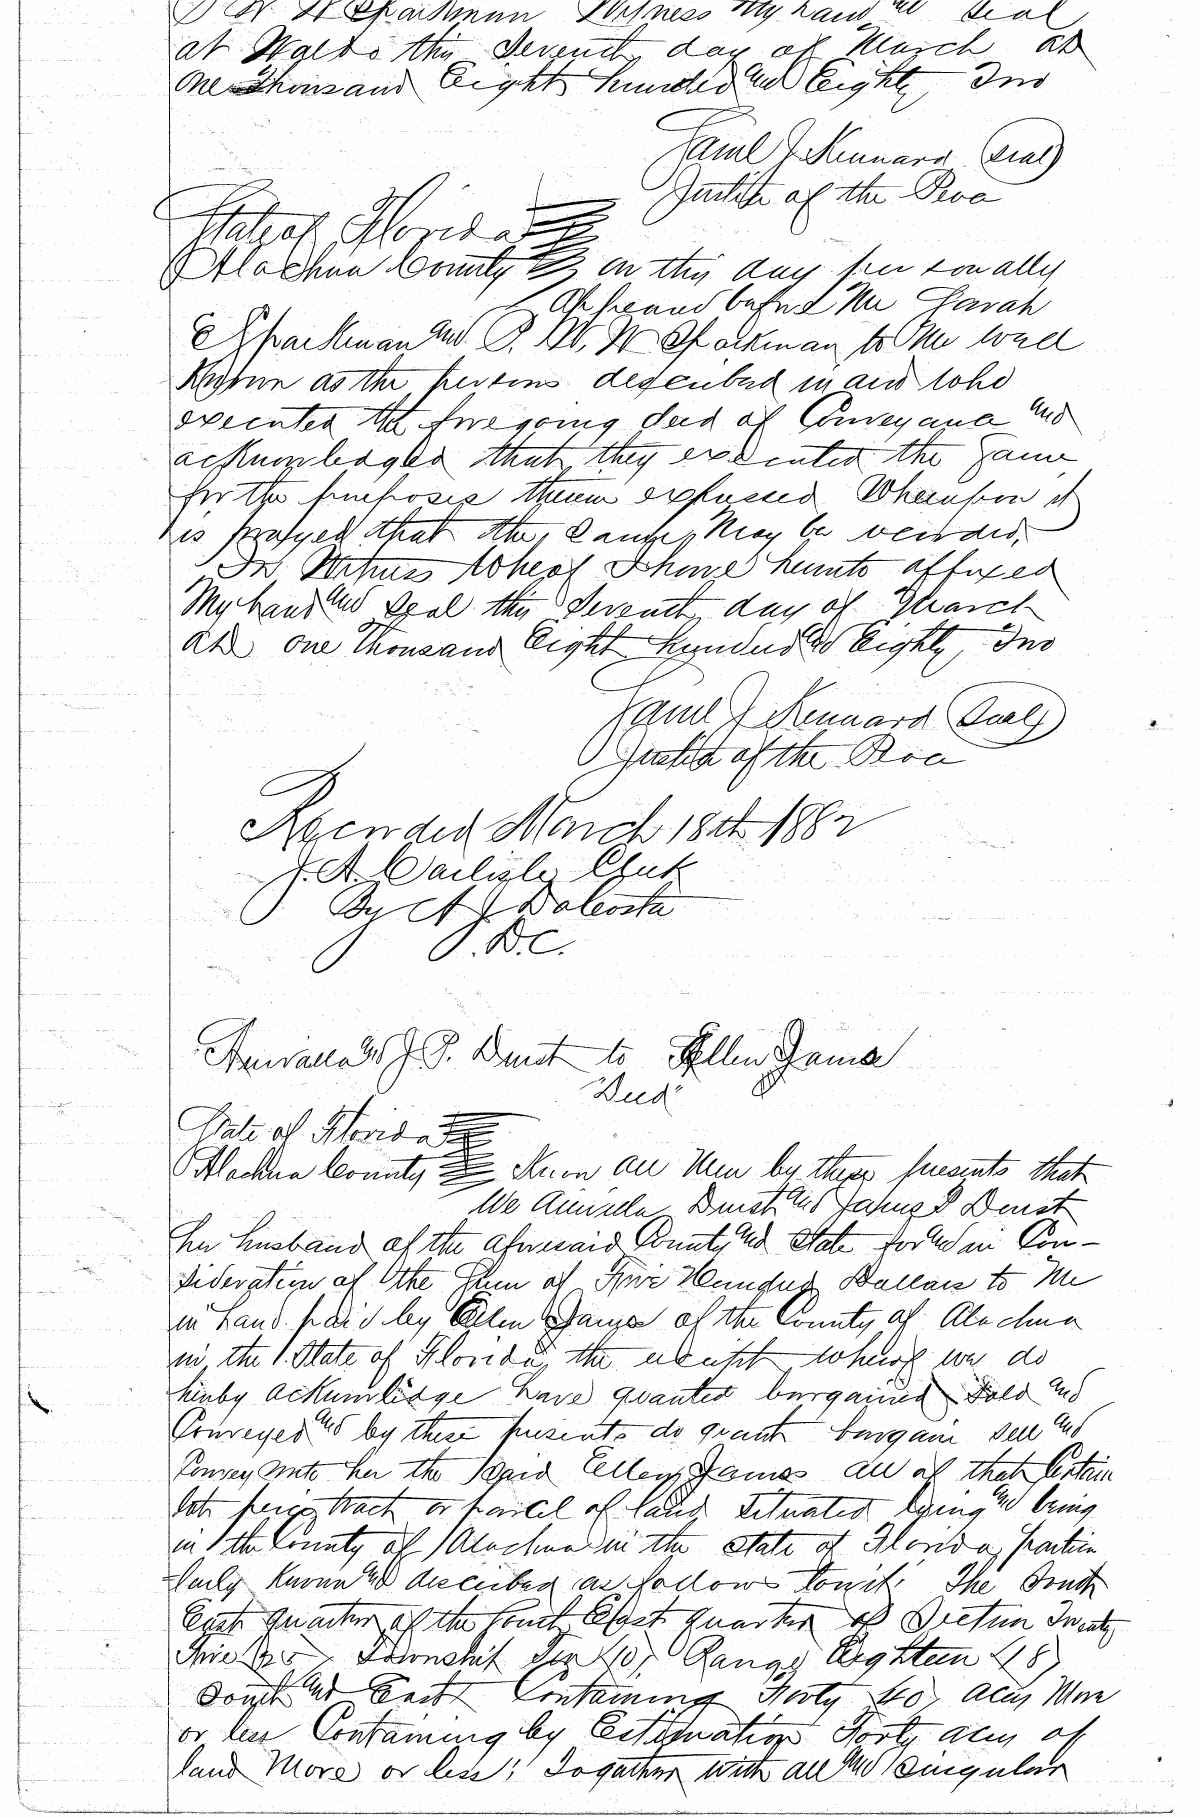 P W W Sparkman Witness My hand and seal
at Waldo this Seventh day of March AD
One Thousand Eight hundred and Eighty Two
Saml J Kennard (Seal)
Justice of the Peace
State of Florida
Alachua County on this day personally
Appeared before Me Sarah
E Sparkman and P. W. W Sparkman to Me well
Known as the persons described in and who
executed the foregoing deed of Conveyance and
acknowledged that they executed the Same
for the purposes therein expressed Whereupon it
is prayed that the same May be recorded.
In Witness Whereof I have hereunto affixed
My hand and seal this Seventh day of March
AD one Thousand Eight hundred and Eighty Two
Saml J Kennard (Seal)
Justice of the Peace
Recorded March 18th 1882
J. A. Carlisle Clerk
By A J DaCosta
D.C.
and J. P. Durst to Ellen James
"Deed"
State of Florida
Alachua County Know all Men by these presents that
We Durst and James P Durst
her husband of the aforesaid County and State for and in Con-
sideration of the Sum of Five Hundred Dollars to Me
in hand paid by Ellen James of the County of Alachua
in the State of Florida the receipt whereof we do
hereby acknowledge have granted bargained Sold and
Conveyed and by these presents do grant bargain sell and
Convey unto her the said Ellen James all of that Certain
lot piece tract or parcel of land situated lying and being
in the County of Alachua in the State of Florida particu
larly known and described as follows towit: The South
East quarter of the South East quarter of Section Twenty
Five (25) Township Ten (10) Range Eighteen (18)
South and East Containing Forty 40 acres More
or less Containing by Estimation Forty acres of
land More or less; Together with all and Singular